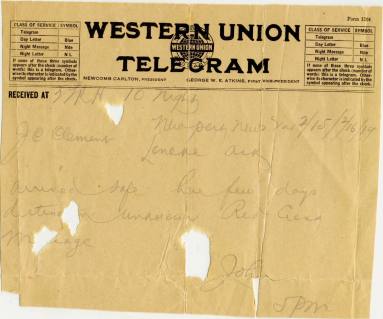 Form 1204
CLASS OF SERVICE SYMBOL
Telegram
Day Letter Blue
Night Message Nite
Night Letter N L
If none of these three symbols appears after the check (number of words) this is a telegram. Otherwise its character is indicated by the symbol appearing after the check.
WESTERN UNION
WESTERN UNION
TELEGRAM
NEWCOMB CARLTON, PRESIDENT GEORGE W. E. ATKINS, FIRST VICE-PRESIDENT
CLASS OF SERVICE SYMBOL
Telegram
Day Letter Blue
Night Message Nite
Night Letter N L
If none of these three symbols appears after the check (number of words) this is a telegram. Otherwise its character is indicated by the symbol appearing after the check.
RECEIVED AT
10
Newport News Va 2/15 2/16/19
J E Clement
Lonoke Ark
arrived safe here few days
destination unknown Red Cross
Message
John
5 PM